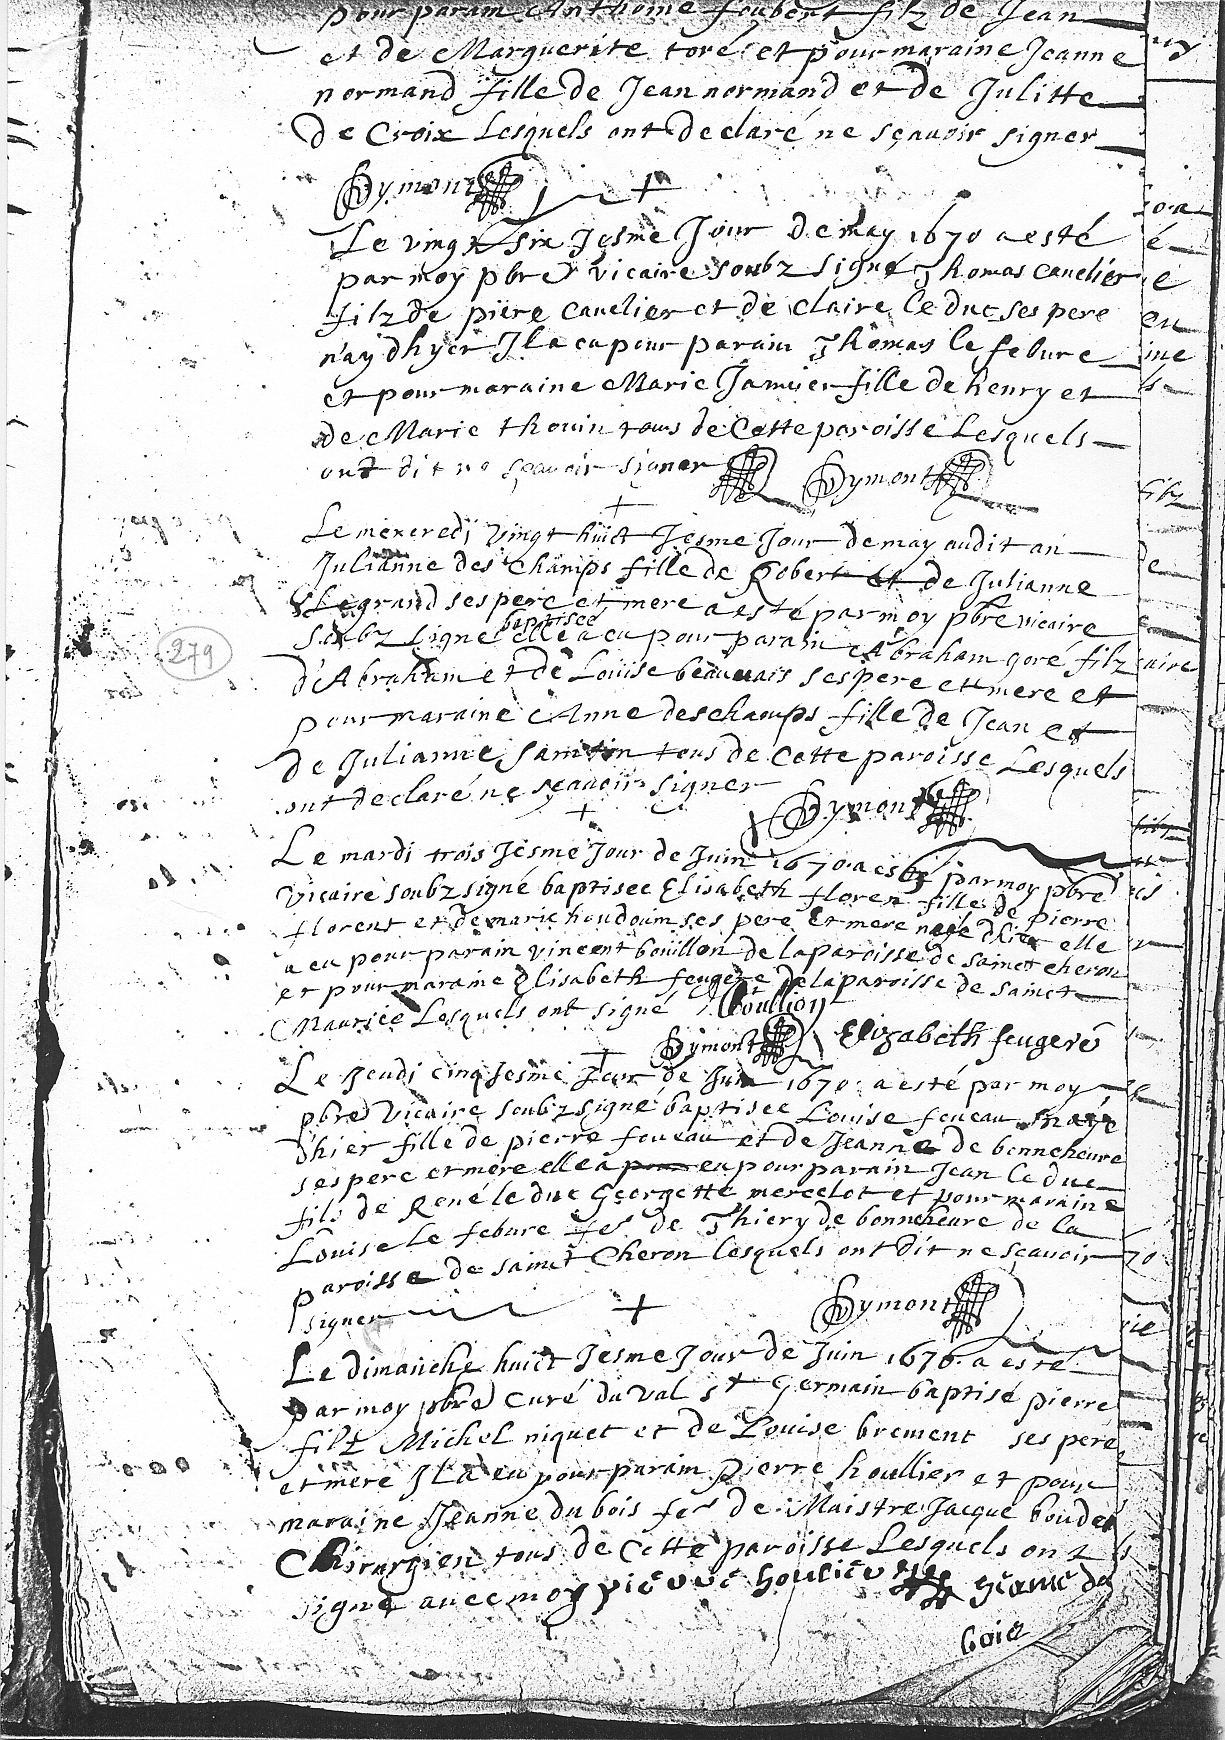 pour parain Anthoine foubert filz de Jean
et de Marguerite toré et pour maraine Jeanne
normand fille de Jean normand et de Julitte
de Croix Lesquels ont declaré ne sçauoir signer
Symont
Le vingt six Jesme Jour de may 1670 a esté
par moy pbre vicaire soubz signé Thomas cauelier
filz de piere cauelier et de claire le duc ses pere
nay dhyer Il a eu pour parain Thomas le febure
et pour maraine Marie Januier fille de henry et
de Marie thouin tous de Cette paroisse Lesquels
ont dit ne sçauoir signer Symont
Le mexredi vingt huict Jesme Jour de may audit an
Julianne des Champs fille de Robert et de Julianne
Legrand ses pere et mere a esté par moy pbre vicaire
baptisee
soubz signé elle a eu pour parain Abraham goré filz
d'Abraham et de Louise beauuais ses pere et mere et
pour maraine Anne deschamps fille de Jean et
de Julianne tous de Cette paroisse Lesquels
ont declaré ne sçauoir signer
Symont
Le mardi trois Jesme Jour de Juin 1670 a esté par moy pbre
vicaire soubz signé baptisee Elisabeth floren fille de pierre
florent et de marie houdouin ses pere et mere nee dhier elle
a eu pour parain vincent bouillon de la paroisse de sainct cheron
et pour maraine Elisabeth feugere de la paroisse de sainct
Maurice Lesquels ont signé Bouillon
Symont Elizabeth feugere
Le Jeudi cinq Jesme Jour de Juin 1670 a esté par moy
pbre vicaire soubz signé baptisee Louise foueau naye
dhier fille de pierre foueau et de Jeanne de bonneheure
ses pere et mere elle a pour eu pour parain Jean le duc
fils de René le duc Georgette mercelot et pour maraine
Louise le febure fe de Thiery de bonneheure de la
paroisse de sainct Cheron lesquels ont dit ne sçauoir
signer Symont
Le dimanche huict Jesme Jour de Juin 1670 a esté
par moy pbre Curé du Val st Germain baptisé pierre
filz Michel niquet et de Louise brement ses pere
et mere Il a eu pour parain pierre houllier et pour
maraine Jeanne du bois fe de Maistre Jacque boudet
Chirurgien tous de Cette paroisse Lesquels ont
signé auec moy pierre houllier Jeanne du
bois
279